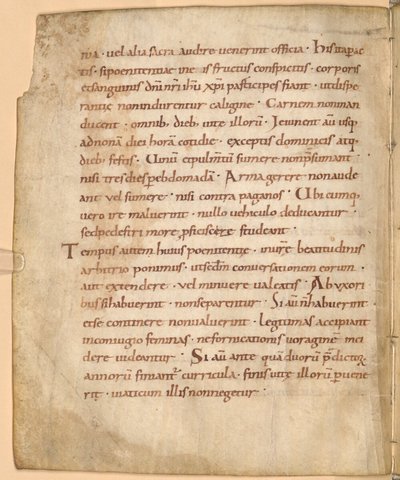 nia · vel alia sacra audire venerint officia · His ita pac
tis · si poenitentiae ine is fructus conspicitis · corporis
et sanguinis dñi nr̄i ihū xp̄i participes fiant · ut dispe
rantiae non indurentur caligine · Carnem non man
ducent · omnib; dieb; vite illorū · Jeiunent aū usq;
ad nonā diei horā cotidie · exceptis dominicis atq;
dieb; festis · Uinū et pulm̄tū sumere non p̄sumant ·
nisi tres dies p̄ ebdomadā · Arma gerere non aude
ant vel sumere · nisi contra paganos · Ubicumq;
vero ire maluerint · nullo vehiculo deducantur ·
sed pedestri more p̄ficiscere studeant ·
Tempus autem huius poenitentiae · in vr̄e beatitudinis
arbitrio ponimus · ut sec̄dm̄ conversationem eorum ·
aut extendere · vel minuere valeatis · Ab uxori
bus si habuerint · non separentur · Si aū n̄ habuerint
et se continere non valuerint · legitimas accipiant
in coniugio feminas · ne fornicationis voragine inci
dere videantur · Si aū ante quā duorū p̄dictor
annorū finiant̄ curricula · finis vite illorū p̄vene
rit · viaticum illis non negetur ·